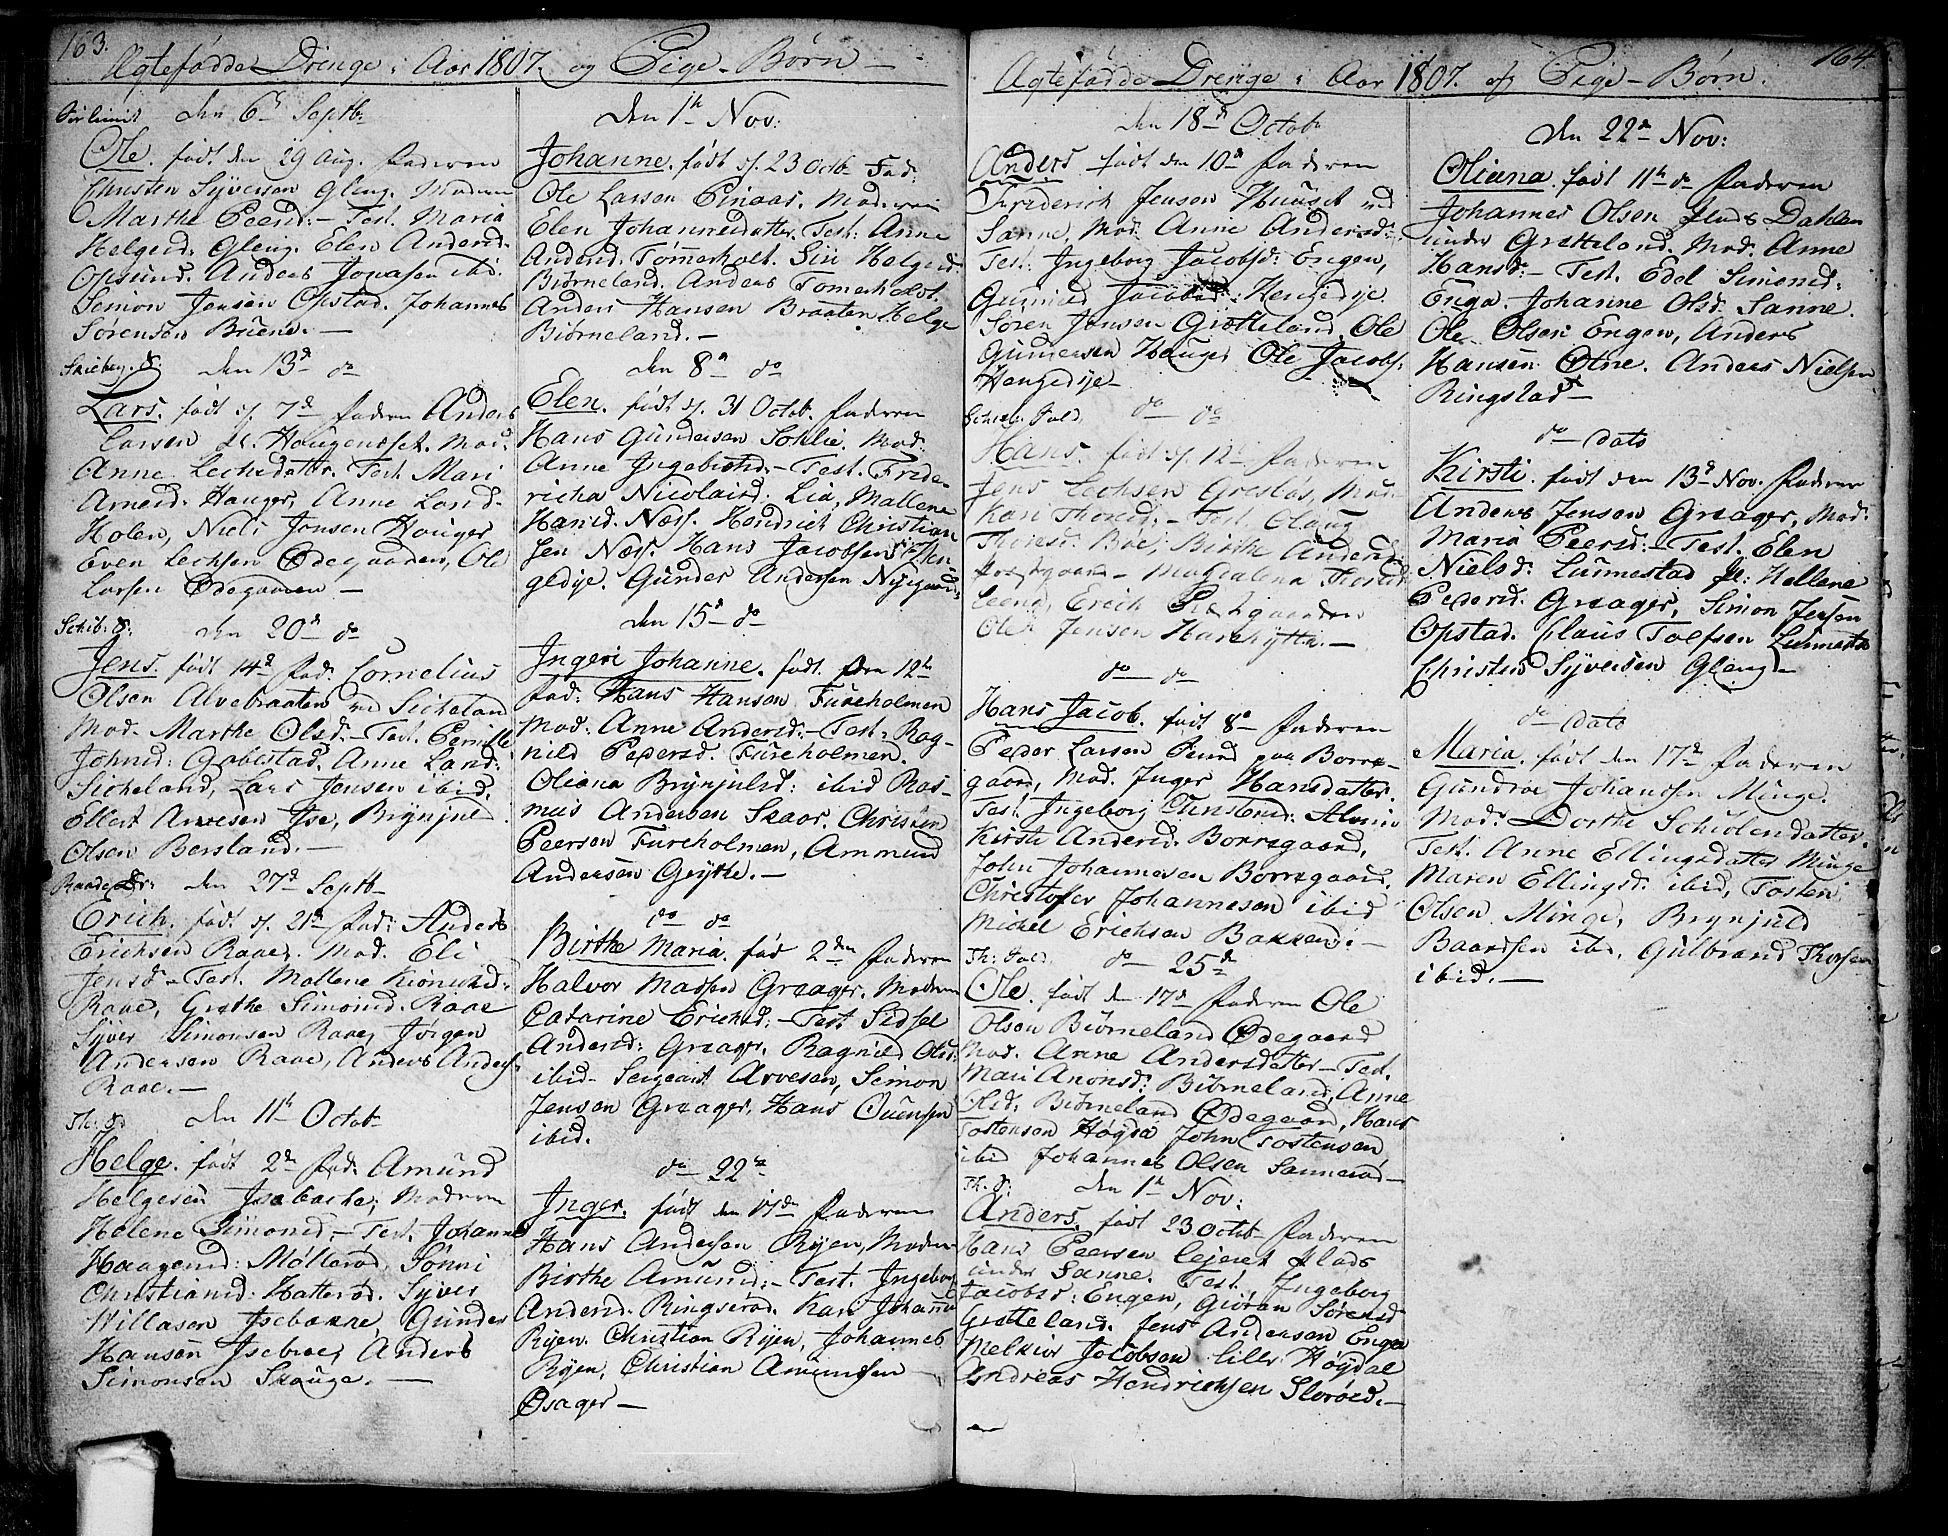 163.
Ægtefødde Drenge i Aar 1807. og Pige-Børn
den 6 Septb
Ole. født den 29 Aug. Faderen
Christen Syversen Gleng. Moderen
Marthe Peersd:- Test. Maria
Helgesd. Gleng. Elen Andersd.
Opsund. Anders Jonasen ibd.
Simon Jensen Opstad. Johannes
Sørensen Bruene.-
Skieb. den 13d do
Lars. født d. 7d Faderen Anders
Larsen Haugenæsset. Mod:
Anne Lechsdatter. Test. Mari
Arnesd. Hauger, Anne Lars d.
Holen, Niels Jonsen Houger
Even Lechsen Ødegaarden, Ole
Larsen Ødegaarden-
Schib. den 20d do
Jens. født 14d Fad. Cornelius
Olsen Alvebraaten ved Sicheland
Mod. Marthe Olsd.- Test. Pernille
Johnsd: Gabestad. Anne Lars d:
Sicheland, Lars Jensen ibid.
Ellert Arvesen Ise, Brynjuld
Olsen Bersland.-
Raade den 27d Septb
Erich. født d. 21d Fad: Anders
Erichsen Raae. Mod. Eli
Jensd- Test. Mallene
Raae, Grethe Simonsd. Raae
Syver Simonsen Raae, Jørgen
Andersen Raae, Anders Anders.
Raae.-
den 11t Octob
Helge. født 2den Fad. Amund
Helgesen Isebache, Moderen
Helene Simonsd.- Test. Johanne
Haagensd: Møllerød, Sønni
Christiansd: Hatterød. Syver
Willasen Isebakke, Gunder
Hansen Isebroe, Anders
Simonsen Skouge.-
Den 1t Nov:
Johanne. født d. 23 Octb Fad:
Ole Larsen Pinaas. Moderen
Elen Johannesdatter. Test: Anne
Andersd. Tømmerholt. Siri Helgesd
Biørneland. Anders Tomerholt.
Anders Hansen Braaten Helge
Biørneland.-
den 8d do
Elen. født d. 31 Octob. Faderen
Hans Gundersen Sohlie. Mod:
Anne Ingebretsd.- Test. Frede-
richa Nicolaisd: Lia, Mallene
Hansd. Næss. Hendrich Christian
sen Næss. Hans Jacobsen Hen-
gedije. Gunder Andersen Nygaard.
den 15d do
Ingeri Johanne. født den 12t
Fad: Hans Hansen Fureholmen
Mod: Anne Andersd.- Test: Rag-
nild Pedersd. Fureholmen.
Oleana Brynjulsd: ibid Ras-
mus Andersen Skaar. Christen
Peersen Fureholmen, Ammund
Andersen Grytte.-
do do
Birthe Maria. fød 2den Faderen
Halvor Madsen Graager. Moderen
Catarine Erichsd:- Test Sidsel
Andersd: Graager. Ragnild Olsd:
ibid- Sergeant Arvesen, Simon
Jensen Graager. Hans Ouensen
ibid.
do 22de
Inger. født den 17de Faderen
Hans Andersen Ryen, Moderen
Birthe Amundsd:- Test. Ingeborg
Andersd. Ringserød. Kari Johanne
Ryen. Christian Ryen, Johannes
Ryen, Christian Amundsen
Øsager-
164.
Ægtefødde Drenge i Aar 1807. og Pige-Børn.
den 18d Octob
Anders født den 10d Faderen
Friderich Jensen Huuset ved
Sanne, Mod. Anne Andersd:
Test: Ingeborg Jacobsd: Engen,
Gunnild Jacobsd: Hengedije
Søren Jensen Grøtteland, Ole
Gundersen Hauger Ole Jacobs.
Hengedije-
do do
Hans. født d. 12t Faderen
Jens Lechsen Greslös, Mod:
Kari Thoresd:- Test. Olaug
Thoresd: Boe, Birthe Andersd:
Magdalena Thoresd:
Leeng, Erich Prestgaarden
Ole Jensen Harehytte.-
do do
Hans Jacob. født 8d Faderen
Peder Larsen Pund paa Borre-
gaard, Mod. Inger Hansdatter.
Test. Ingeborg
Kirsti Andersd. Borregaard,
John Johannesen Borregaard.
Christofer Johannesen ibid
Michel Erichsen Bakken.-
do 25de
Ole. født den 17d Faderen Ole
Olsen Biørneland Ødegaard
Mod. Anne Andersdatter- Test.
Mari Anonsd: Biørneland, Anne
Olsd: Biørneland Ødegaard, Hans
Tostensen Høgda John Tostensen
ibid Johannes Olsen Sannerød-
den 1t Nov:
Anders. født 23 Octb Faderen
Hans Peersen lejeret Plads
under Sanne. Test. Ingeborg
Jacobsd: Engen, Giøran Sørensd
Grotteland. Jens Andersen Engen
Melkior Jacobsen lille Høydal
Andreas Hendrichsen Slorøed.-
den 22d Nov:
Oliana. født 11t do Faderen
Johannes Olsen Dahlen
under Grotteland. Mod. Anne
Hansd:- Test. Edel Simonsd:
Enga. Johanne Olsd. Sanne.
Ole Olsen Engen, Anders
Hansen Otne. Anders Nielsen
Ringstad-
do dato
Kirsti. født den 13d Nov. Faderen
Anders Jensen Graager, Mod:
Maria Peersd:- Test. Elen
Nielsd: Lunnestad Hellene
Pedersd. Graager, Simon Jensen
Opstad. Claus Toefsen Lunnestad
Christen Syversen Gleng-
do dato
Maria. født den 17de Faderen
Gundroe Johansen Minge.
Mod: Dorthe Schiölensdatter.
Test. Anne Ellingsdatter Minge
Maren Ellingsd: ibid, Tosten
Olsen Minge, Brynjuld
Baardsen ibd. Gulbrand Thorsen
ibid.-